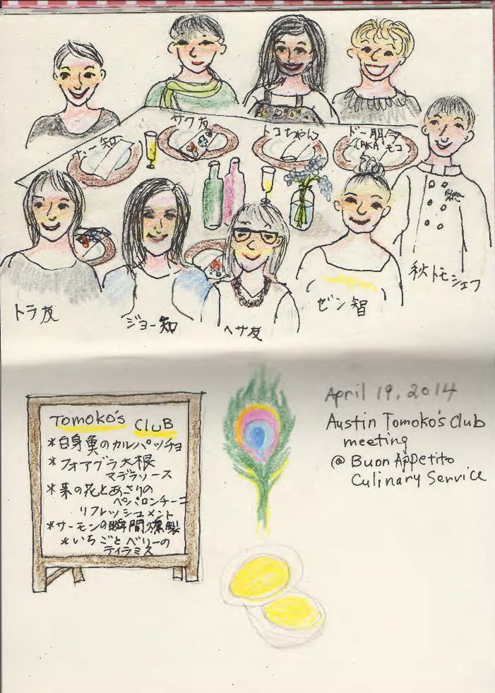 サワ友
トコちゃんこ
トラ友
ジョー知
ヘサ友
ゼン智
秋トモシェフ
Tomoko's CluB
*白身魚のカルパッチョ
*フォアグラ大根
マデラソース
*菜の花とあさりの
ペペロンチーニ
リフレッシュメント
*サーモンの瞬間燻製
*いちごとベリーの
ティラミス
April 19, 2014
Austin Tomoko's Club
meeting
@ Buon Appetito
Culinary Service